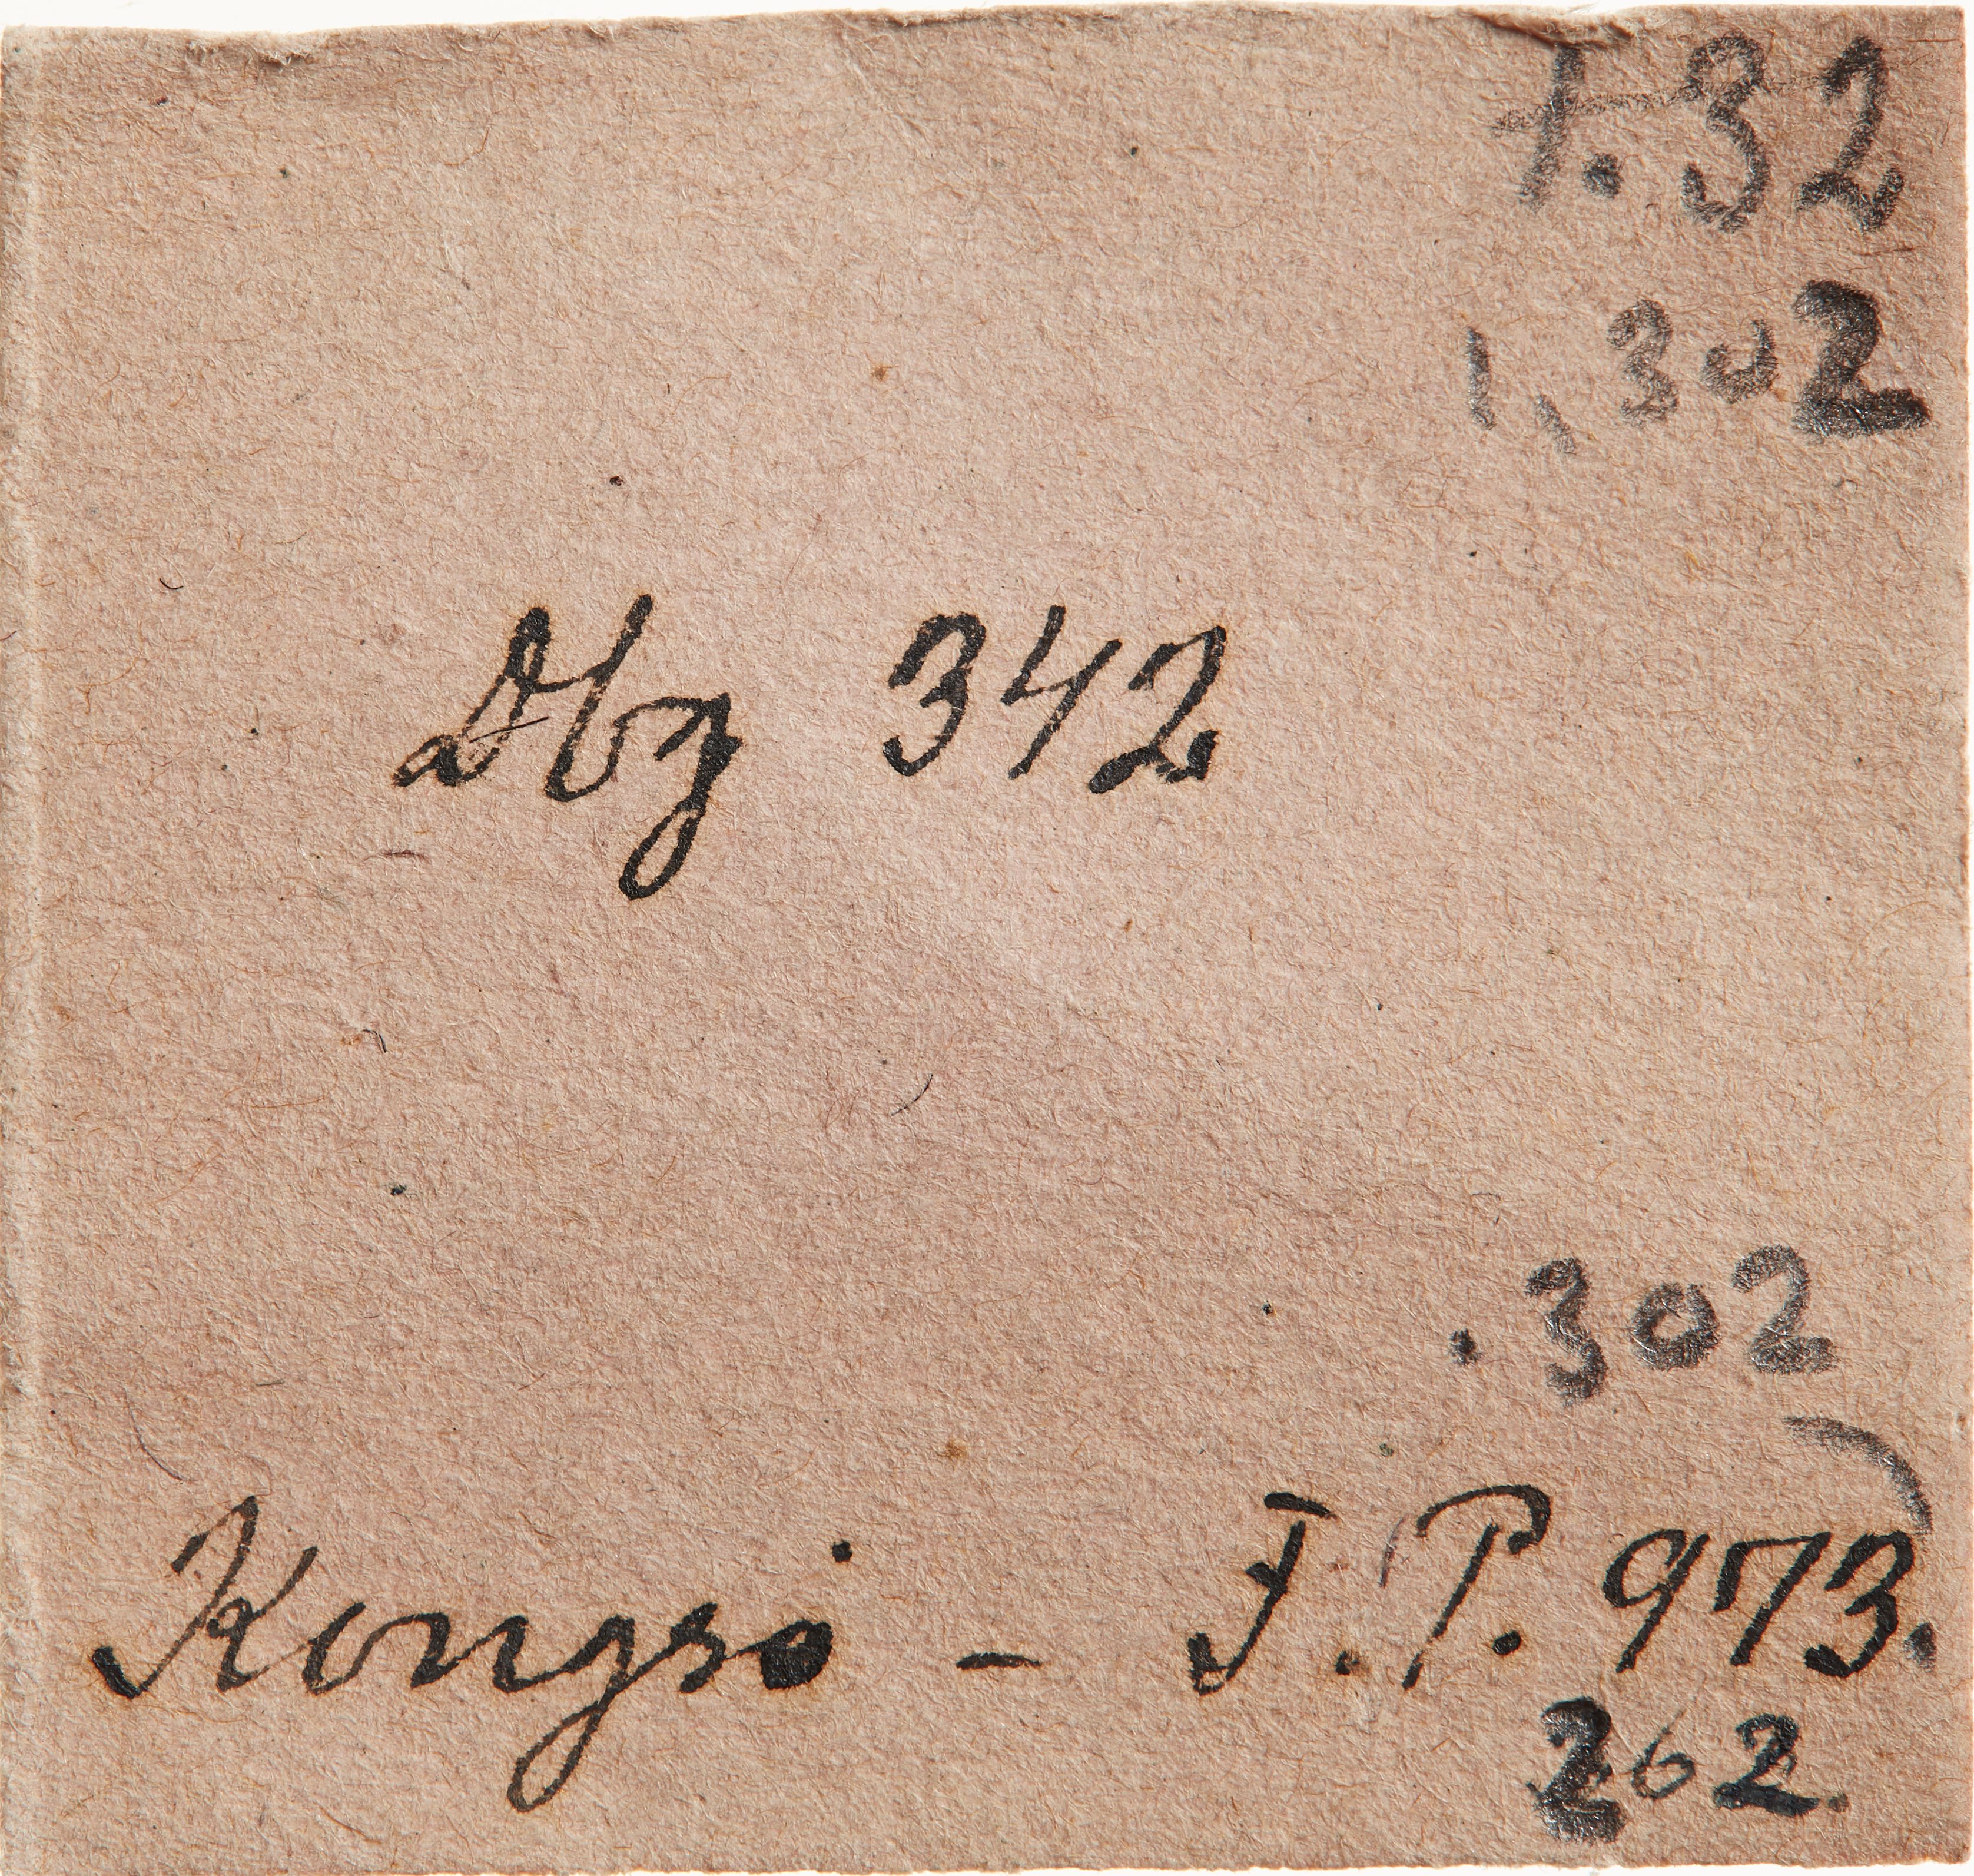 1.32
1,302
Dbg 342
.302
Kongsö - F.P. 973.
262.